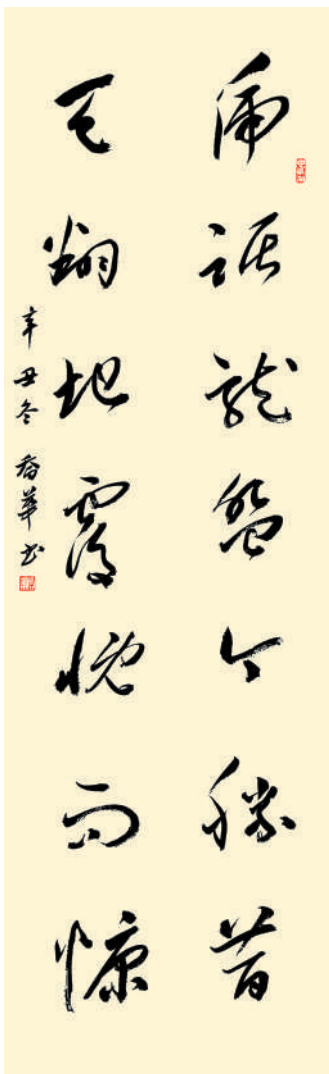 虎踞龍盤今勝昔
天翻地覆慨而慷
辛丑冬 喬華书